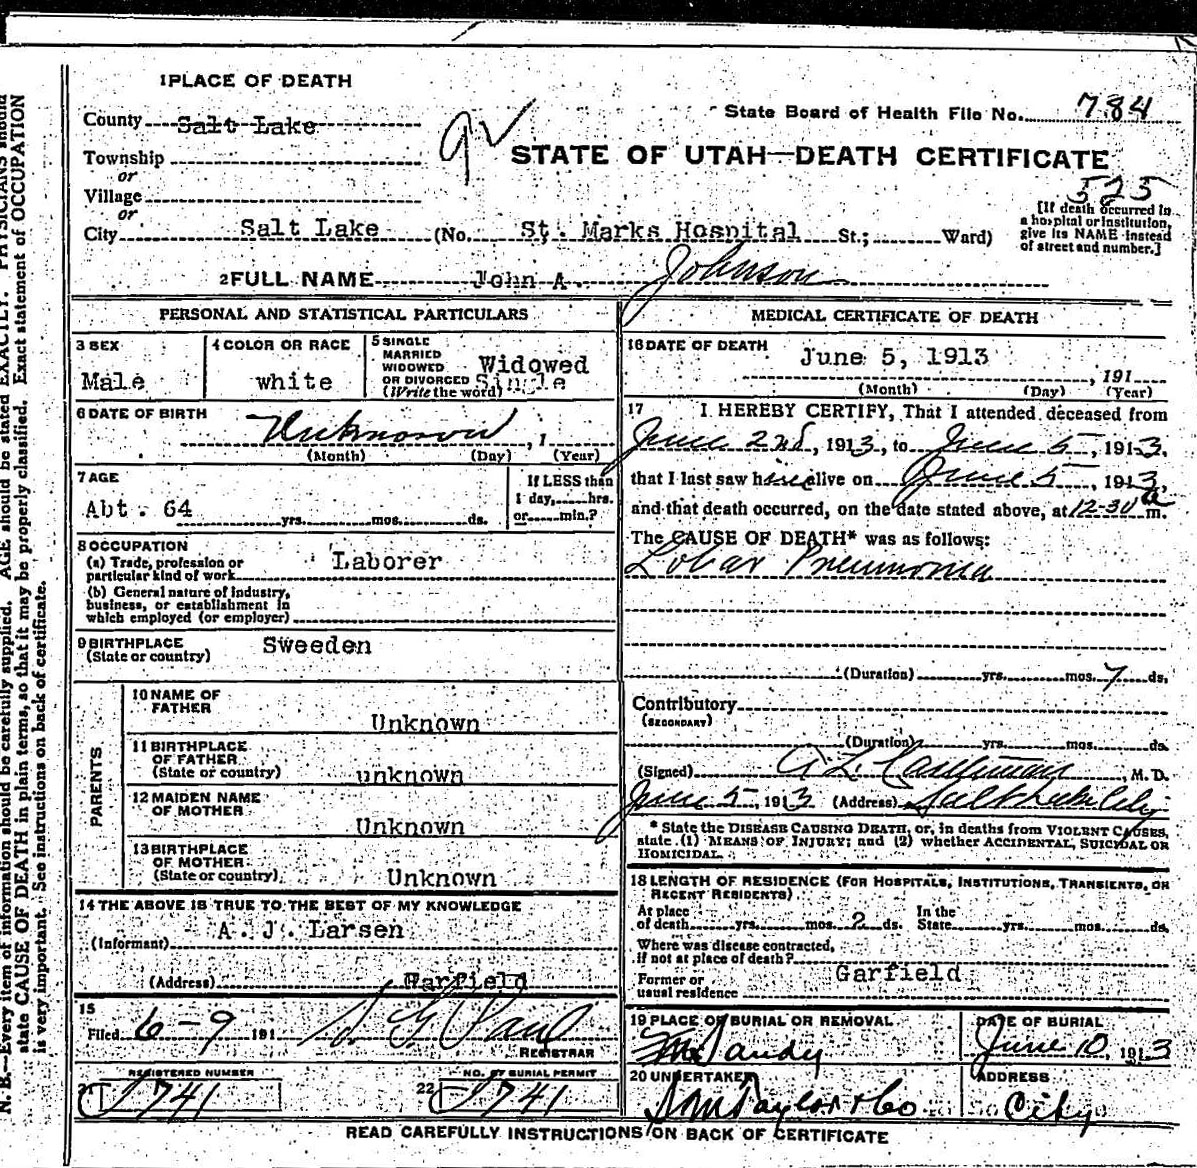 1 PLACE OF DEATH
County Salt Lake
State Board of Health File No. 784
Township
or
Village
or
STATE OF UTAH—DEATH CERTIFICATE
525
[If death occurred in a hospital or institution, give its NAME instead of street and number.]
City Salt Lake (No. St. Marks Hospital St.; Ward)
2 FULL NAME John A. Johnson
PERSONAL AND STATISTICAL PARTICULARS
3 SEX
Male
4 COLOR OR RACE
white
5 SINGLE
MARRIED
WIDOWED
OR DIVORCED
(Write the word)
Widowed
Single
6 DATE OF BIRTH
Unknown, 1
(Month) (Day) (Year)
7 AGE
Abt. 64
yrs. mos. ds.
If LESS than
1 day, hrs.
or min.?
8 OCCUPATION
(a) Trade, profession or
particular kind of work Laborer
(b) General nature of industry,
business, or establishment in
which employed (or employer)
9 BIRTHPLACE
(State or country) Sweeden
PARENTS
10 NAME OF
FATHER
Unknown
11 BIRTHPLACE
OF FATHER
(State or country) unknown
12 MAIDEN NAME
OF MOTHER
Unknown
13 BIRTHPLACE
OF MOTHER
(State or country) Unknown
14 THE ABOVE IS TRUE TO THE BEST OF MY KNOWLEDGE
(Informant) A. J. Larsen
(Address) Garfield
15
Filed 6-9 191
REGISTRAR
REGISTERED NUMBER
741
22 NO. OF BURIAL PERMIT
741
MEDICAL CERTIFICATE OF DEATH
16 DATE OF DEATH
June 5, 1913
, 191
(Month) (Day) (Year)
17 I HEREBY CERTIFY, That I attended deceased from
June 2nd, 1913, to June 5, 1913,
that I last saw him alive on June 5, 1913,
and that death occurred, on the date stated above, at 12-30 a m.
The CAUSE OF DEATH* was as follows:
Lobar Pneumonia
(Duration) yrs. mos. 7 ds.
Contributory
(SECONDARY)
(Duration) yrs. mos. ds.
(Signed) , M. D.
June 5, 1913 (Address) Salt Lake City
* State the DISEASE CAUSING DEATH, or, in deaths from VIOLENT CAUSES,
state (1) MEANS OF INJURY; and (2) whether ACCIDENTAL, SUICIDAL OR
HOMICIDAL.
18 LENGTH OF RESIDENCE (FOR HOSPITALS, INSTITUTIONS, TRANSIENTS, OR
RECENT RESIDENTS)
At place
of death yrs. mos. 2 ds.
In the
State yrs. mos. ds.
Where was disease contracted,
if not at place of death?
Former or
usual residence Garfield
19 PLACE OF BURIAL OR REMOVAL
Sandy
DATE OF BURIAL
June 10, 1913
20 UNDERTAKER
Taylor & Co
ADDRESS
City
READ CAREFULLY INSTRUCTIONS ON BACK OF CERTIFICATE
N. B.—Every item of information should be carefully supplied. AGE should be stated EXACTLY. PHYSICIANS should
state CAUSE OF DEATH in plain terms, so that it may be properly classified. Exact statement of OCCUPATION
is very important. See instructions on back of certificate.